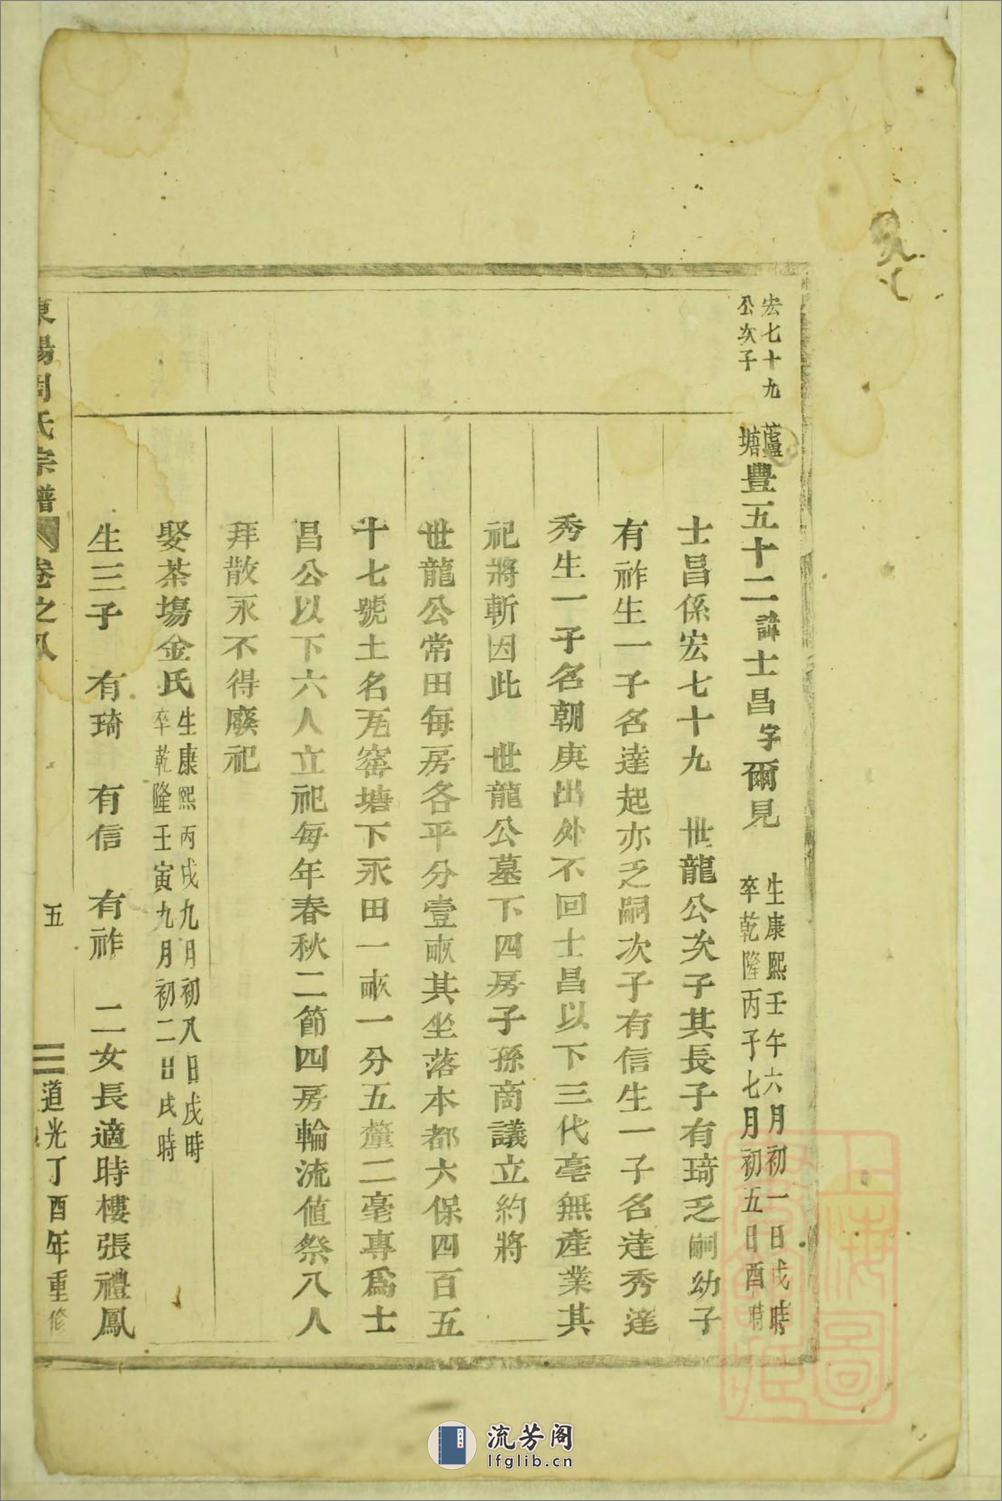 宏七十九
公次子
蘆
塘
豊五十二諱士昌字爾見
生康熙壬午六月初一日戌時
卒乾隆丙子七月初五日酉時
士昌係宏七十九 世龍公次子其長子有琦乏嗣幼子
有祚生一子名達起亦乏嗣次子有信生一子名達秀達
秀生一子名朝庚出外不回士昌以下三代毫無產業其
祀將斬因此 世龍公墓下四房子孫商議立約將
世龍公常田每房各平分壹畝其坐落本都六保四百五
十七號土名瓦窰塘下永田一畝一分五釐二毫專爲士
昌公以下六人立祀每年春秋二節四房輪流值祭八人
拜散永不得廢祀
娶茶塲金氏
生康熙丙戌九月初八日戌時
卒乾隆壬寅九月初二日戌時
生三子 有琦 有信 有祚 二女長適時樓張禮鳳
東陽周氏宗譜 卷之八 五 道光丁酉年重修
上海圖書館藏
流芳阁
lfglib.cn